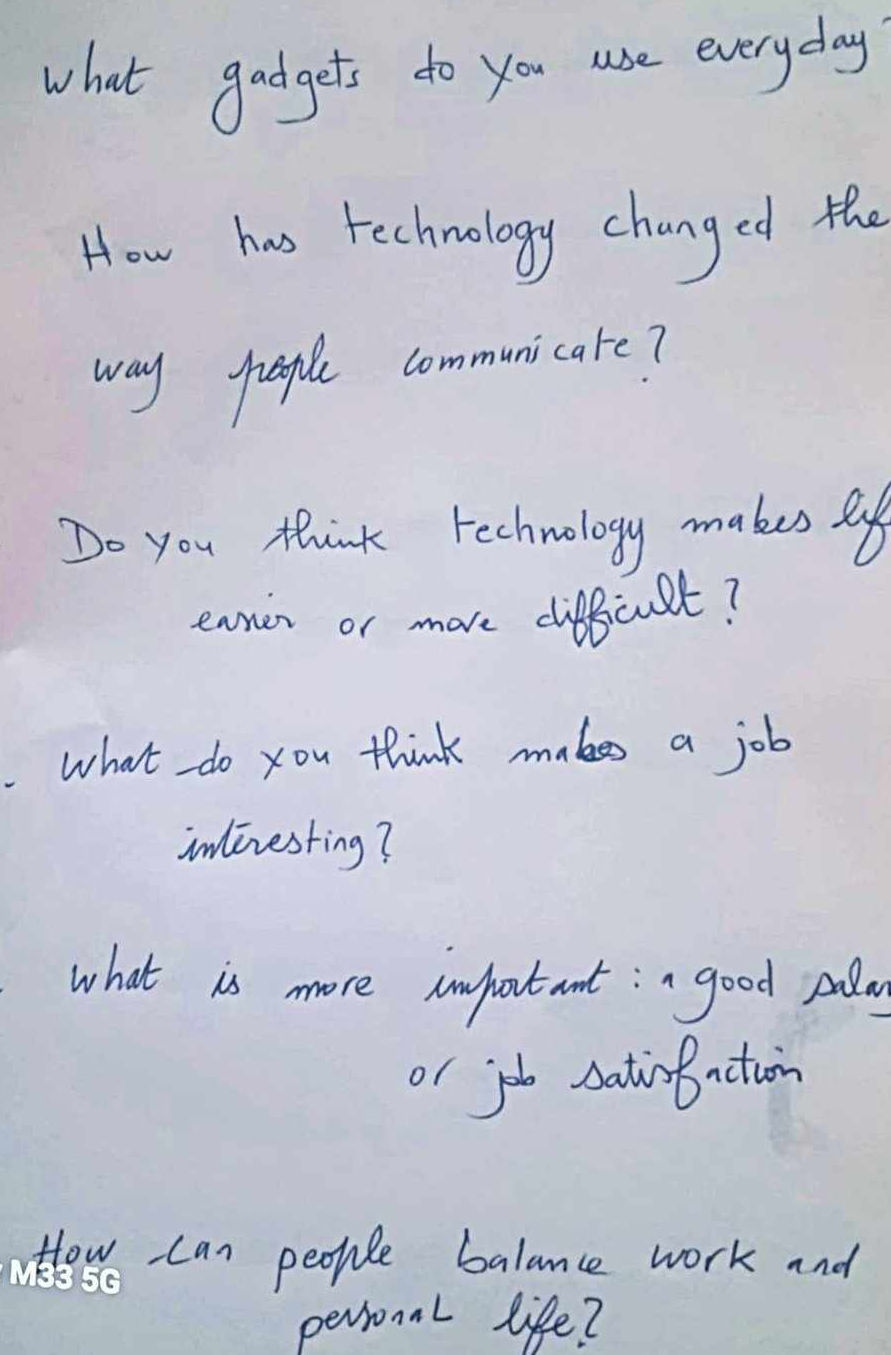 What gadgets do you use everyday
How has technology changed the
way people communicate?
Do you think technology makes lif
easier or more difficult?
- What do you think makes a job
interesting?
- What is more important : a good salar
or job satisfaction
How can people balance work and
M33 5G
personal life?